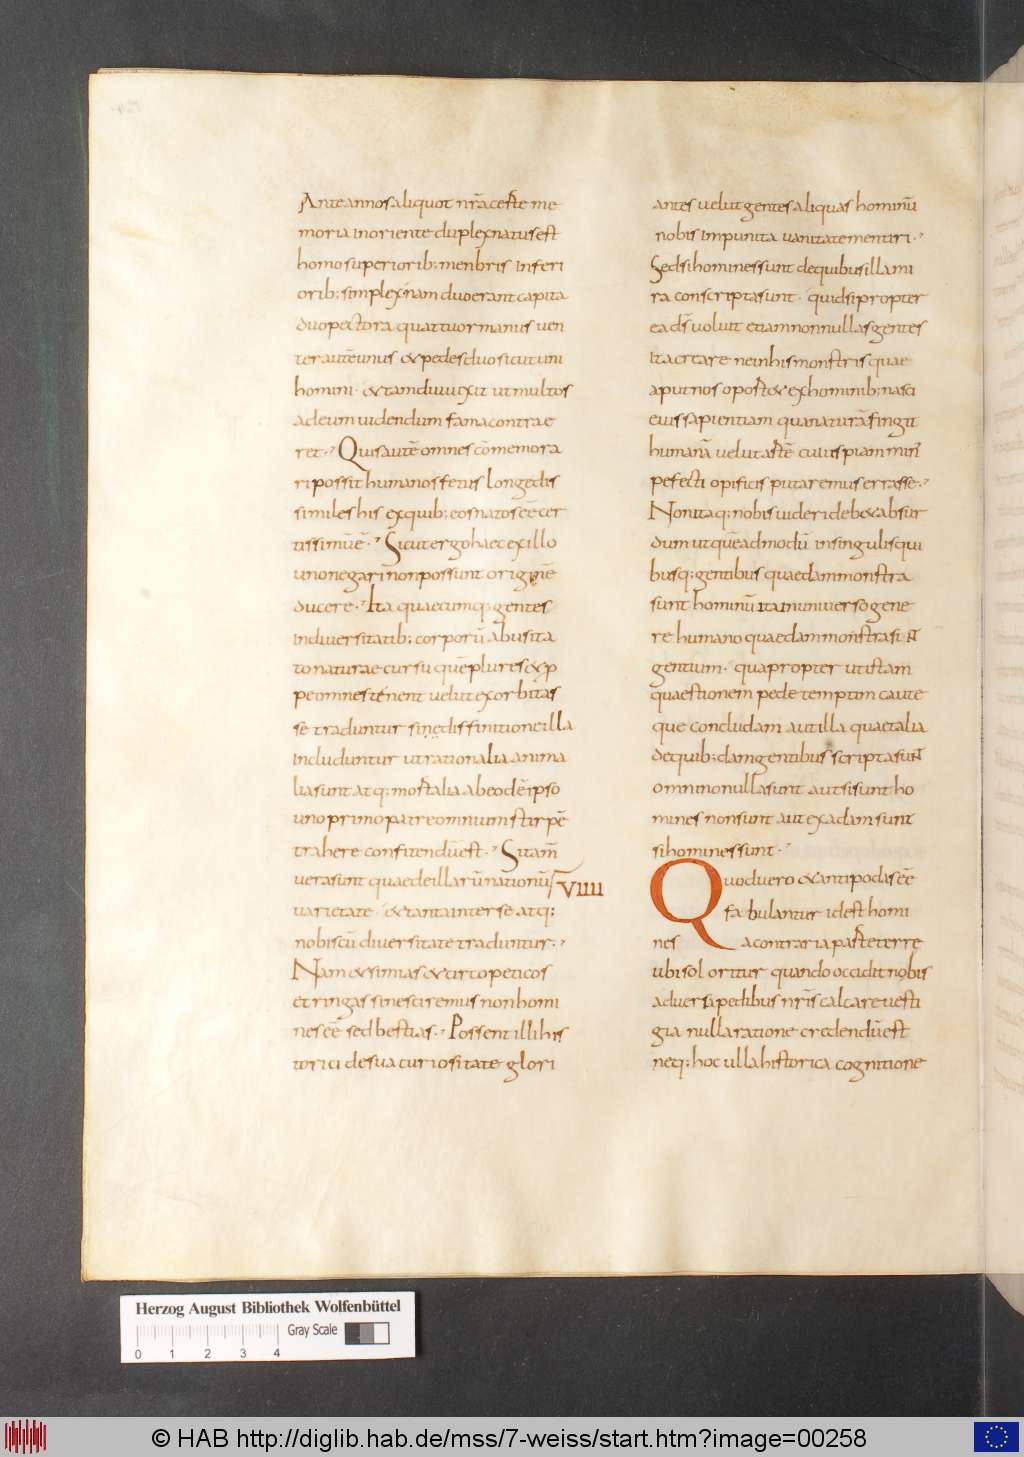 Ante annos aliquot nr̄a certe me
moria in oriente duplex natus est
homo superiorib; menbris inferi
orib; simplex nam duo erant capita
duo pectora quattuor manus uen
ter autē unus & pedes duo sicut uni
homini · & tam diu uixit ut multos
ad eum uidendum fama contrae
ret · Quis autē omnes cōmemora
ri possit humanos fetus longe dis
similes his ex quib; eos natos eē cer
tissimū ē · Sicut ergo haec ex illo
uno negari non possunt originē
ducere · Ita quaecumq; gentes
in diuersitatib; corporū ab usita
to naturae cursu quē plures & p̱
pe omnes tenent uelut exorbitas
se traduntur si ne diffinitione illa
includuntur ut rationalia anima
lia sunt atq; mortalia ab eodē ipso
uno primo patre omnium stirpē
trahere confitendū est · Si tam̄
uera sunt quae de illarū nationū
VIIII
uarietate & tanta inter se atq;
nobiscū diuersitate traduntur ·
Nam & simias & circopeticos
et ringas si nesciremus non homi
nes eē sed bestias · Possent illi his
torici de sua curiositate glori
antes uelut gentes aliquas hominū
nobis impunita uanitate mentiri ·
Sed si homines sunt de quibus illa mi
ra conscripta sunt · quid si propter
ea ds̄ uoluit etiam nonnullas gentes
ita creare ne in his monstris quae
aput nos oport& ex hominib; nasci
eius sapientiam qua naturā fingit
humanā uelut artē cuiuspiam min
pefecti opificis putaremus errasse ·
Non itaq; nobis uideri deb& absur
dum ut quēadmodū in singulis qui
busq; gentibus quaedam monstra
sunt hominū ita in uniuerso gene
re humano quaedam monstra sint
gentium · quapropter ut istam
quaestionem pedetemptim caute
que concludam aut illa quae talia
de quib;dam gentibus scripta sunt
omnino nulla sunt aut si sunt ho
mines non sunt aut ex adam sunt
si homines sunt ·
Quod uero & antipodas eē
fabulantur id est homi
nes a contraria parte terre
ubi sol oritur quando occidit nobis
aduersa pedibus nr̄is calcare uesti
gia nulla ratione credendū est
neq; hoc ulla historica cognitione
Herzog August Bibliothek Wolfenbüttel
Gray Scale
0 1 2 3 4
© HAB http://diglib.hab.de/mss/7-weiss/start.htm?image=00258